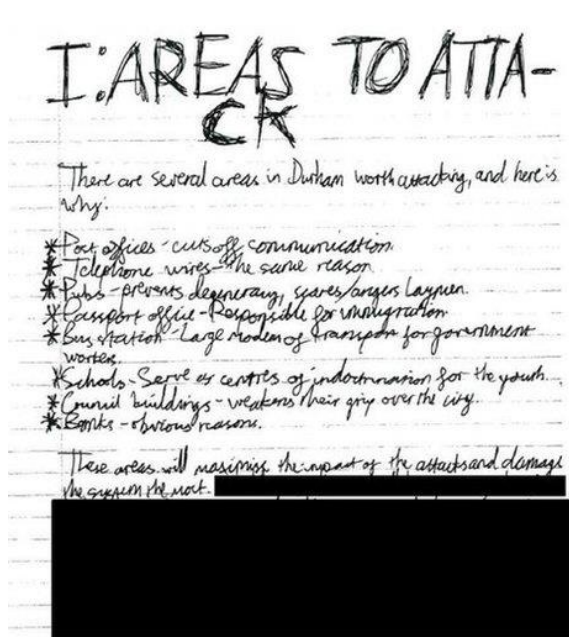 I: AREAS TO ATTA-
CK
There are several areas in Durham worth attacking, and here is
why:
* Post offices - cuts off communication
* Telephone wires - the same reason.
* Pubs - prevents degeneracy, scares/angers laymen
* Passport office - Responsible for immigration
* Bus station - Large modem of transport for government
workers.
* Schools - Serve as centres of indoctrination for the youth.
* Council buildings - weakens their grip over the city.
* Banks - obvious reasons.
These areas will maximise the impact of the attacks and damage
the system the most.